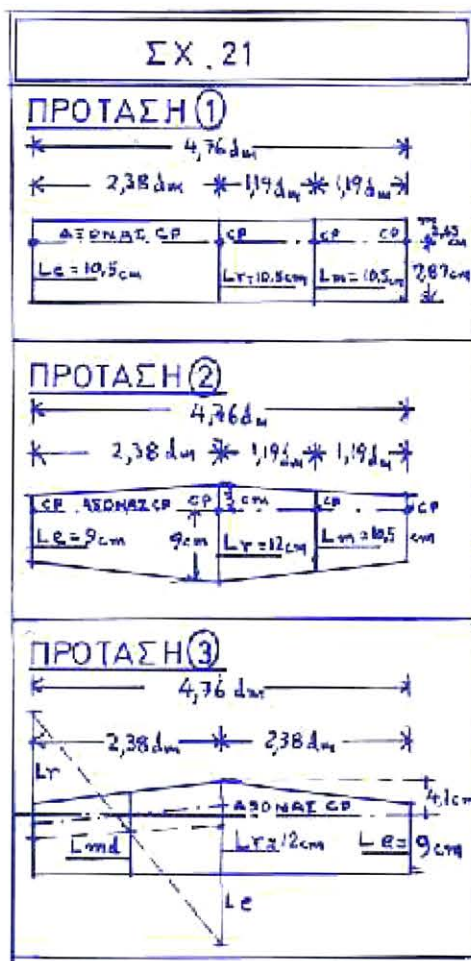 ΣΧ. 21
ΠΡΟΤΑΣΗ 1
4,76 dm
2,38 dm 1,19 dm 1,19 dm
ΑΞΟΝΑΣ CP CP CP CP
Le = 10,5 cm Lr = 10,5 cm Lm = 10,5 cm 7,87 cm
ΠΡΟΤΑΣΗ 2
4,76 dm
2,38 dm 1,19 dm 1,19 dm
CP ΑΞΟΝΑΣ CP CP 3 cm CP CP
Le = 9 cm 9 cm Lr = 12 cm Lm = 10,5 cm
ΠΡΟΤΑΣΗ 3
4,76 dm
2,38 dm 2,38 dm
Lr
ΑΞΟΝΑΣ CP 4,1 cm
Lmd Lr = 12 cm Le = 9 cm
Le